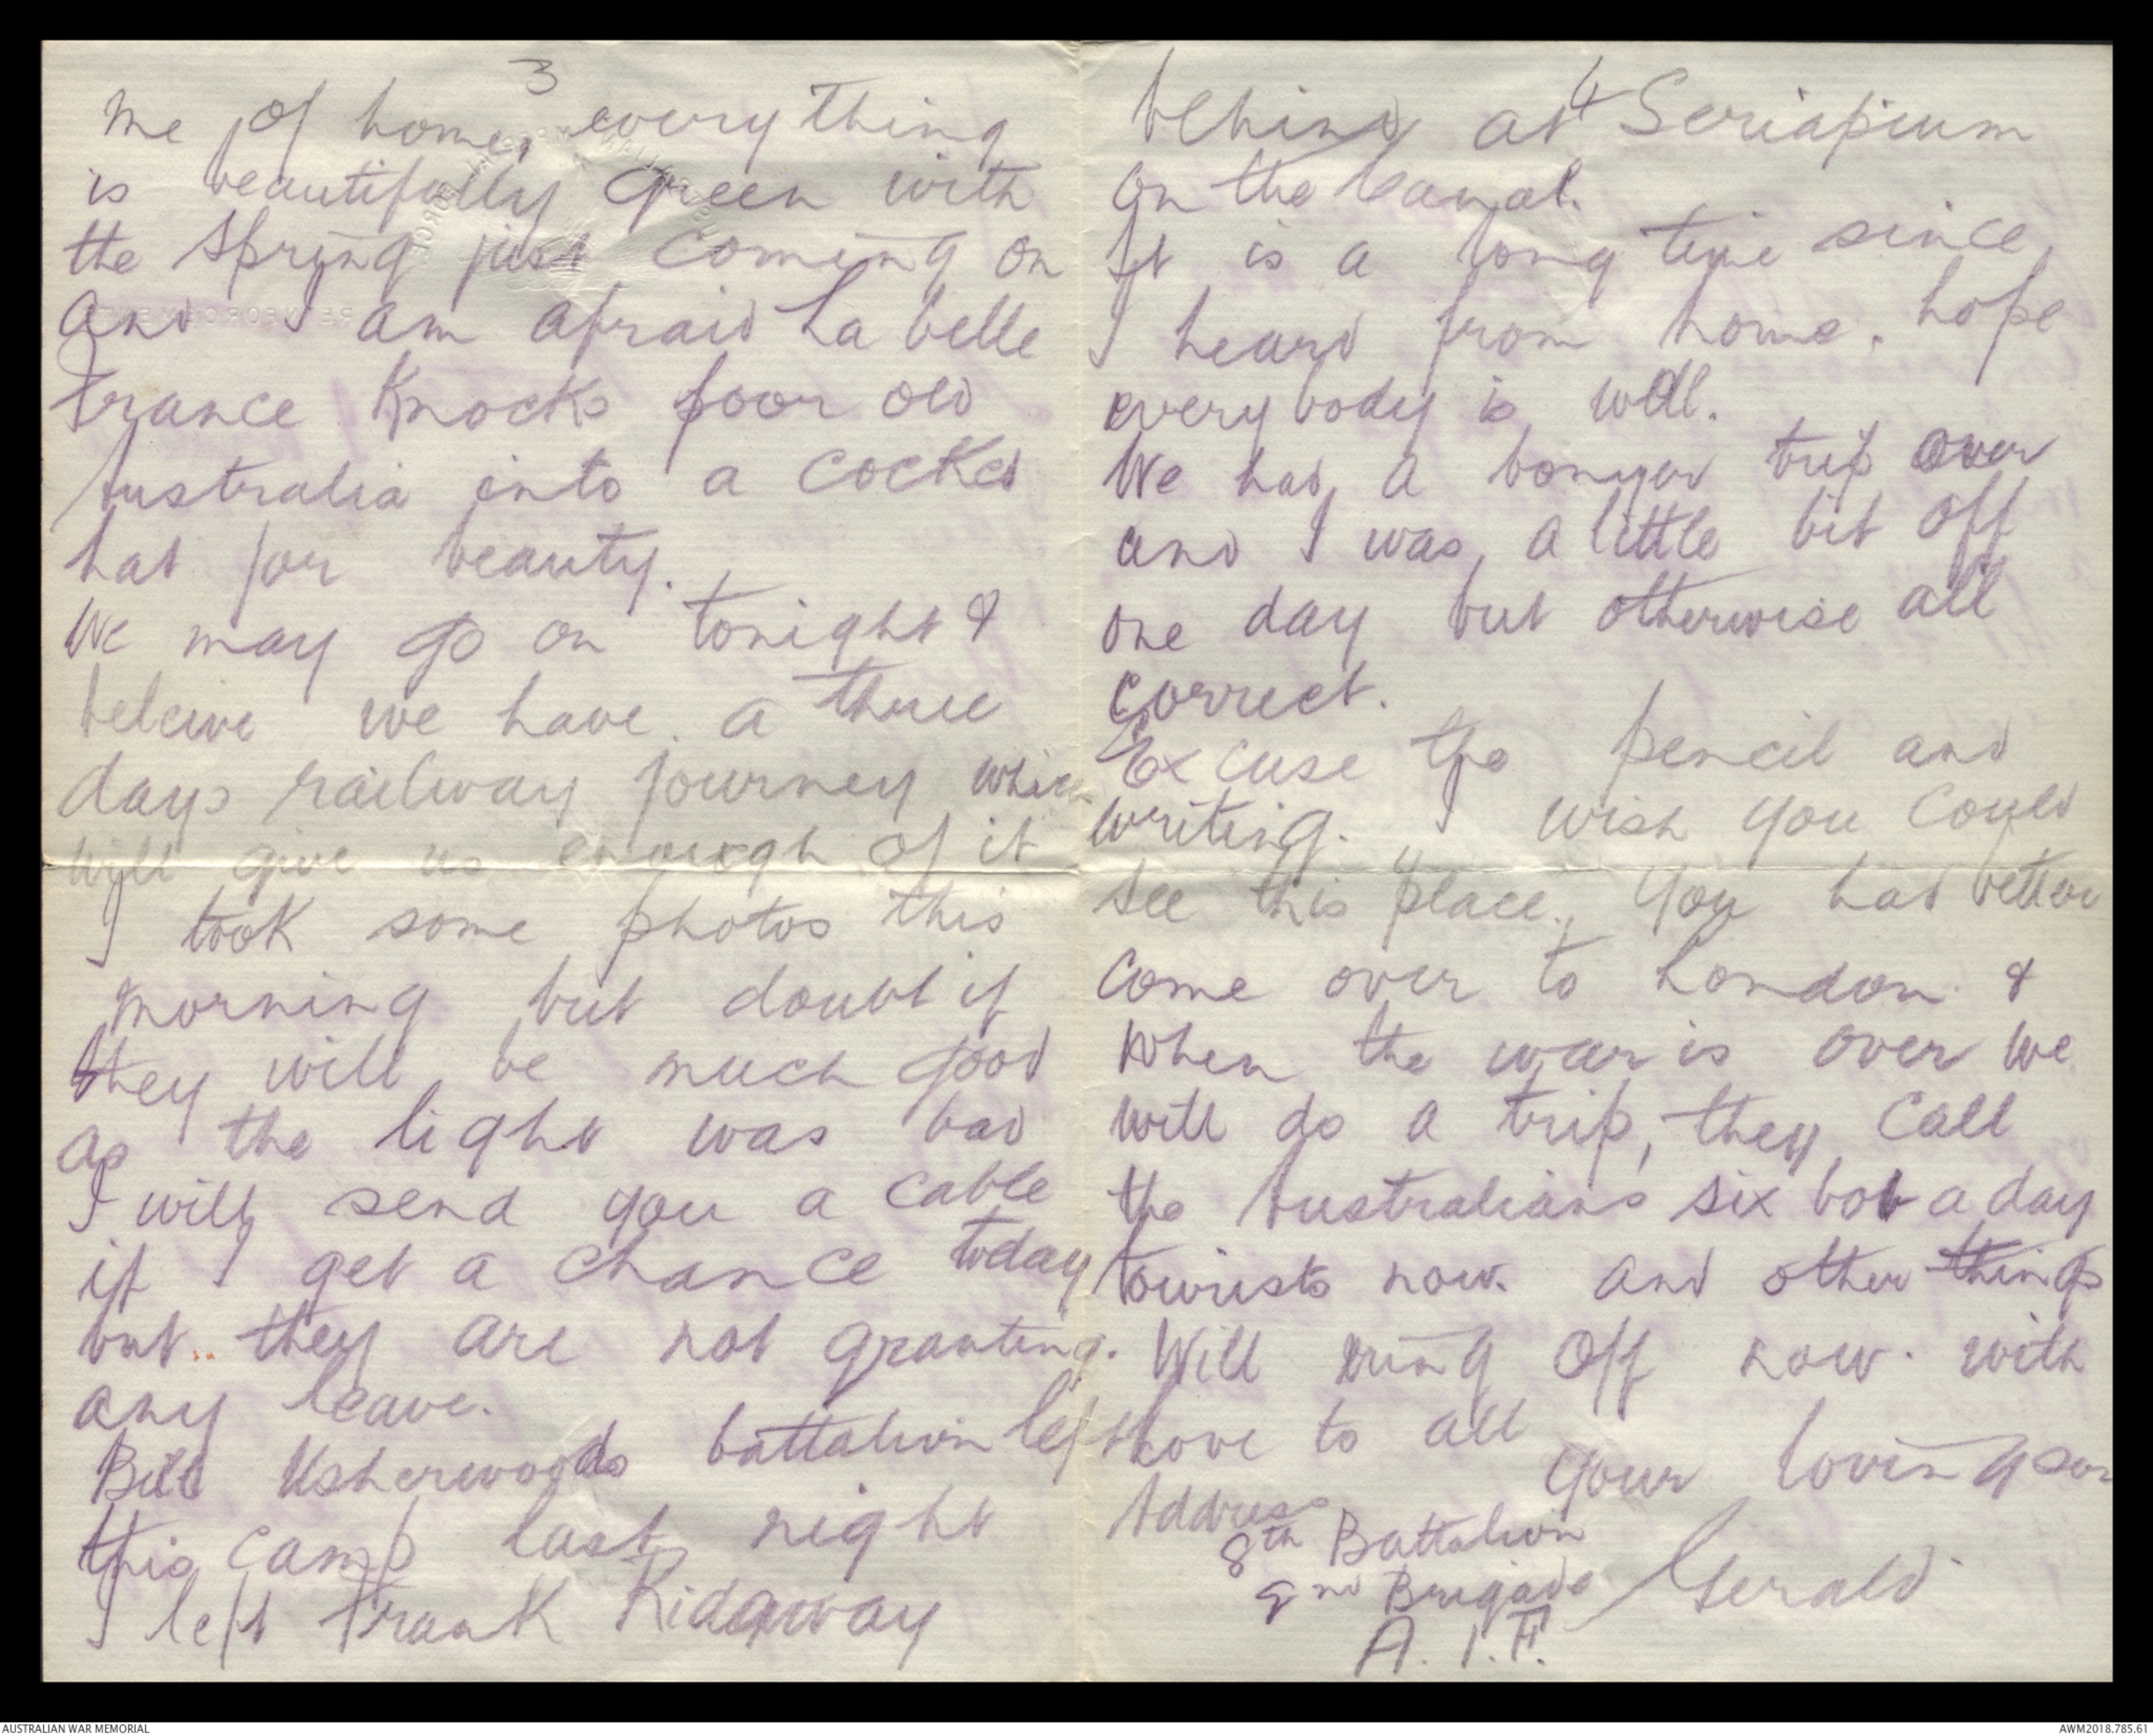 3
me of home, everything
is beautifully green with
the spring just coming on
and I am afraid La belle
France Knocks poor old
Australia into a cocked
hat for beauty.
We may go on tonight &
beleive we have a three
days railway journey which
will give us enough of it
I took some photos this
morning but doubt if
they will be much good
as the light was bad
I will send you a cable
if I get a chance today
but they are not granting
any leave.
Bill Usherwoods battalion left
this camp last night
I left Frank Ridgway
4
behind at Seriapium
on the Canal.
It is a long time since
I heard from home. hope
everybody is well.
We had a bonyer trip over
and I was a little bit off
one day but otherwise all
correct.
Excuse the pencil and
writing. I wish you could
see this place. You had better
come over to London &
when the war is over we
will do a trip, they call
the Australians six bob a day
tourists now. and other things
Will ring off now. with
Love to all
your loving son
Address
8th Battalion
2nd Brigade
A. I. F.
Gerald
AUSTRALIAN WAR MEMORIAL
AWM2018.785.61